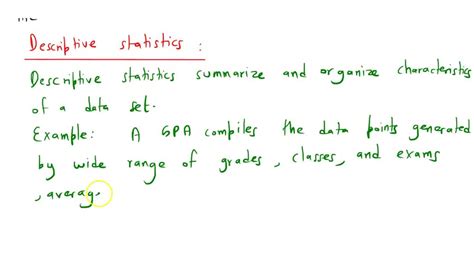 Descriptive statistics :
Descriptive statistics summarize and organize characteristics
of a data set.
Example: A GPA compiles the data points generated
by wide range of grades, classes, and exams
, averag